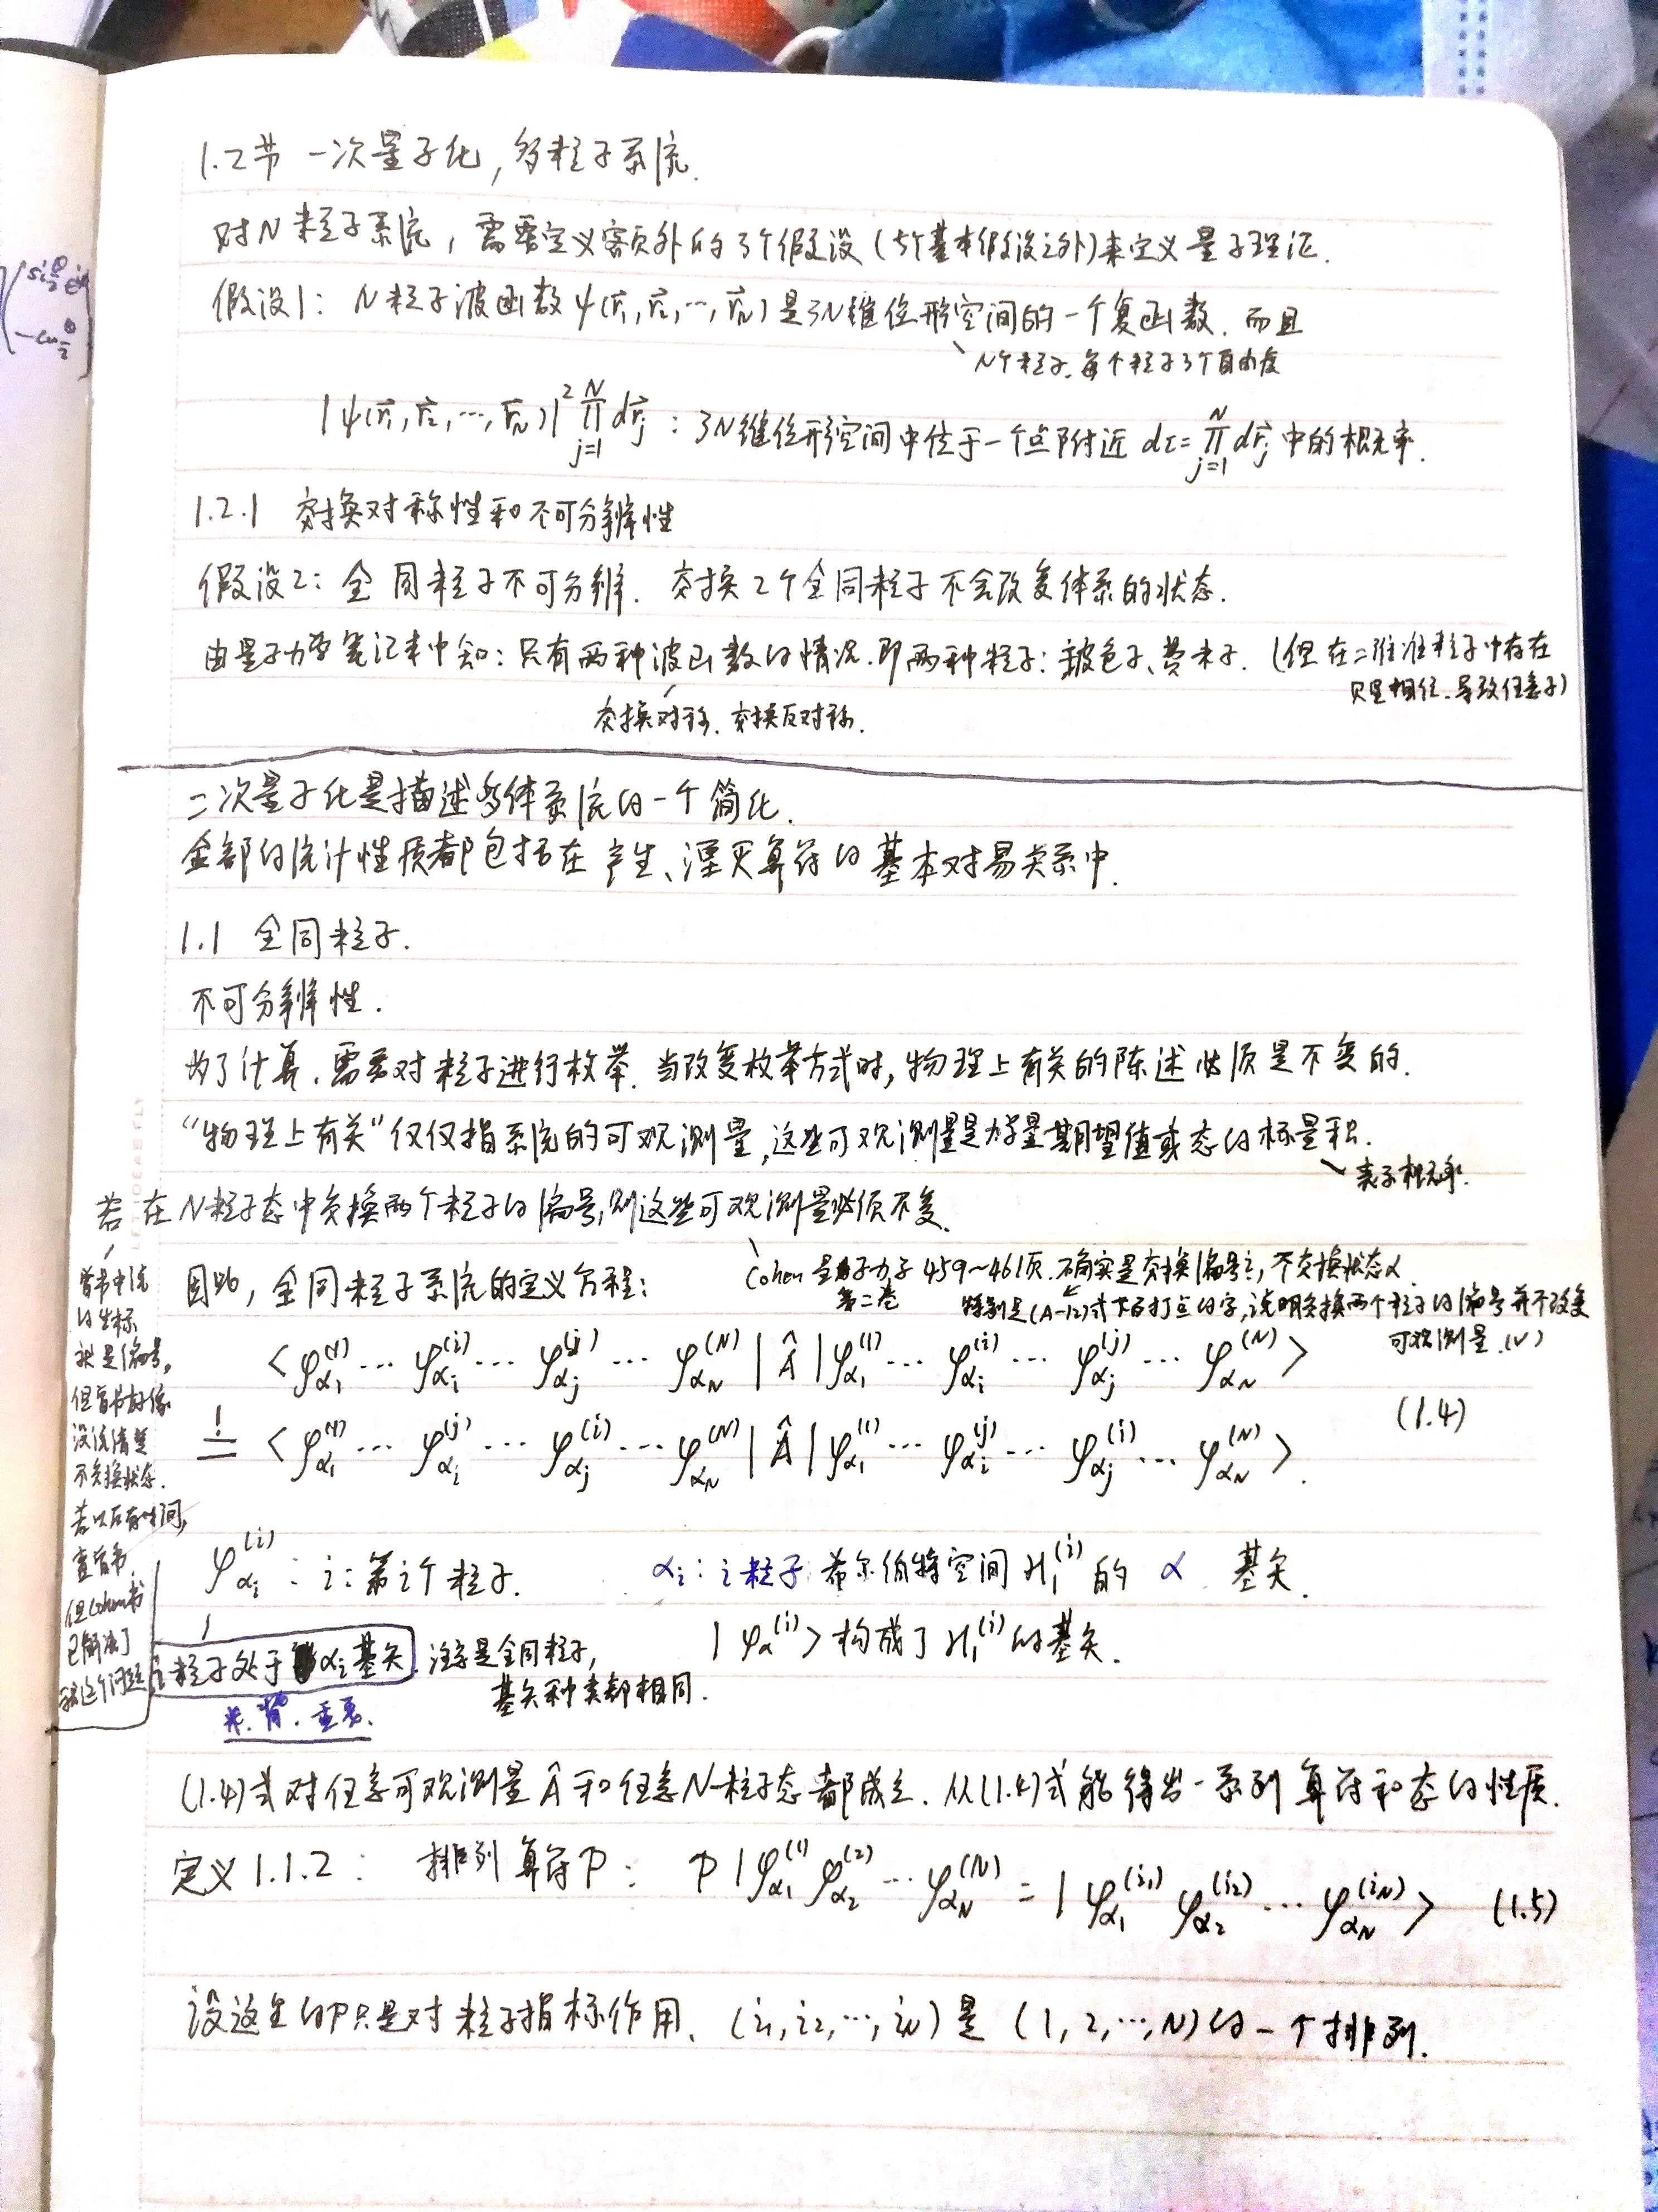 1.2节 一次量子化,多粒子系统.
对N粒子系统,需要定义额外的3个假设(5个基本假设之外)来定义量子理论.
假设1: N粒子波函数ψ(r⃗₁,r⃗₂,…,r⃗_N)是3N维位形空间的一个复函数.而且
N个粒子.每个粒子3个自由度
|ψ(r⃗₁,r⃗₂,…,r⃗_N)|² ∏_{j=1}^{N} dr⃗_j : 3N维位形空间中位于一个点附近 dτ=∏_{j=1}^{N} dr⃗_j 中的概率.
1.2.1 交换对称性和不可分辨性
假设2: 全同粒子不可分辨. 交换2个全同粒子不会改变体系的状态.
由量子力学笔记本中知:只有两种波函数的情况.即两种粒子:玻色子、费米子.(但在二维准粒子中存在
交换对称. 交换反对称.
二次量子化是描述多体系统的一个简化.
全部的统计性质都包括在产生、湮灭算符的基本对易关系中.
1.1 全同粒子.
不可分辨性.
为了计算,需要对粒子进行枚举.当改变枚举方式时,物理上有关的陈述性质是不变的.
“物理上有关”仅仅指系统的可观测量,这些可观测量是力学量期望值或态的标量积.
表示概率.
若在N粒子态中交换两个粒子的编号,则这些可观测量必须不变.
Cohen 量子力学 459~461页.确实是交换编号i,不交换状态α.
第二卷
特别是(A-12)式下面打点的字,说明交换两个粒子的编号并不改变
可观测量.(√)
因此,全同粒子系统的定义方程:
<φ_{α₁}^{(1)}… φ_{α_i}^{(i)}… φ_{α_j}^{(j)} … φ_{α_N}^{(N)} | Â | φ_{α₁}^{(1)}… φ_{α_i}^{(i)}… φ_{α_j}^{(j)}… φ_{α_N}^{(N)}>
(1.4)
=! <φ_{α₁}^{(1)}… φ_{α_i}^{(j)}… φ_{α_j}^{(i)}… φ_{α_N}^{(N)} | Â | φ_{α₁}^{(1)}… φ_{α_i}^{(j)}… φ_{α_j}^{(i)}… φ_{α_N}^{(N)}>.
的坐标
就是编号,
但首书好像
没说清楚
不交换状态.
若以后有时间,
查首书.
但Cohen书
已解决了
这个问题
φ_{α_i}^{(i)} : i:第i个粒子. α_i: i粒子希尔伯特空间H₁^{(i)}的 α 基矢.
|φ_α^{(i)}>构成了H₁^{(i)}的基矢.
i粒子处于α_i基矢. 注意是全同粒子,
基矢种类都相同.
背.重要.
(1.4)式对任意可观测量Â和任意N-粒子态都成立.从(1.4)式能得出一系列算符和态的性质.
定义1.1.2: 排列算符P: P|φ_{α₁}^{(1)} φ_{α₂}^{(2)} … φ_{α_N}^{(N)} = |φ_{α₁}^{(i₁)} φ_{α₂}^{(i₂)} … φ_{α_N}^{(i_N)}> (1.5)
设这里的P只是对粒子指标作用.(i₁,i₂,…,i_N)是(1,2,…,N)的一个排列.